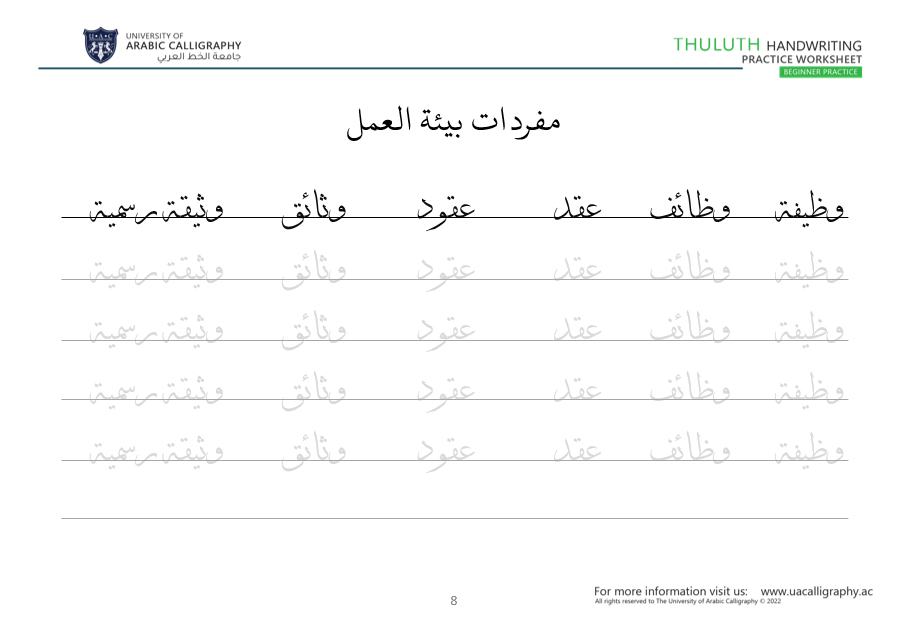 UNIVERSITY OF
ARABIC CALLIGRAPHY
جامعة الخط العربي
THULUTH HANDWRITING
PRACTICE WORKSHEET
BEGINNER PRACTICE
مفردات بيئة العمل
وظيفة وظائف عقد عقود وثائق وثيقة رسمية
وظيفة وظائف عقد عقود وثائق وثيقة رسمية
وظيفة وظائف عقد عقود وثائق وثيقة رسمية
وظيفة وظائف عقد عقود وثائق وثيقة رسمية
وظيفة وظائف عقد عقود وثائق وثيقة رسمية
8
For more information visit us: www.uacalligraphy.ac
All rights reserved to The University of Arabic Calligraphy © 2022